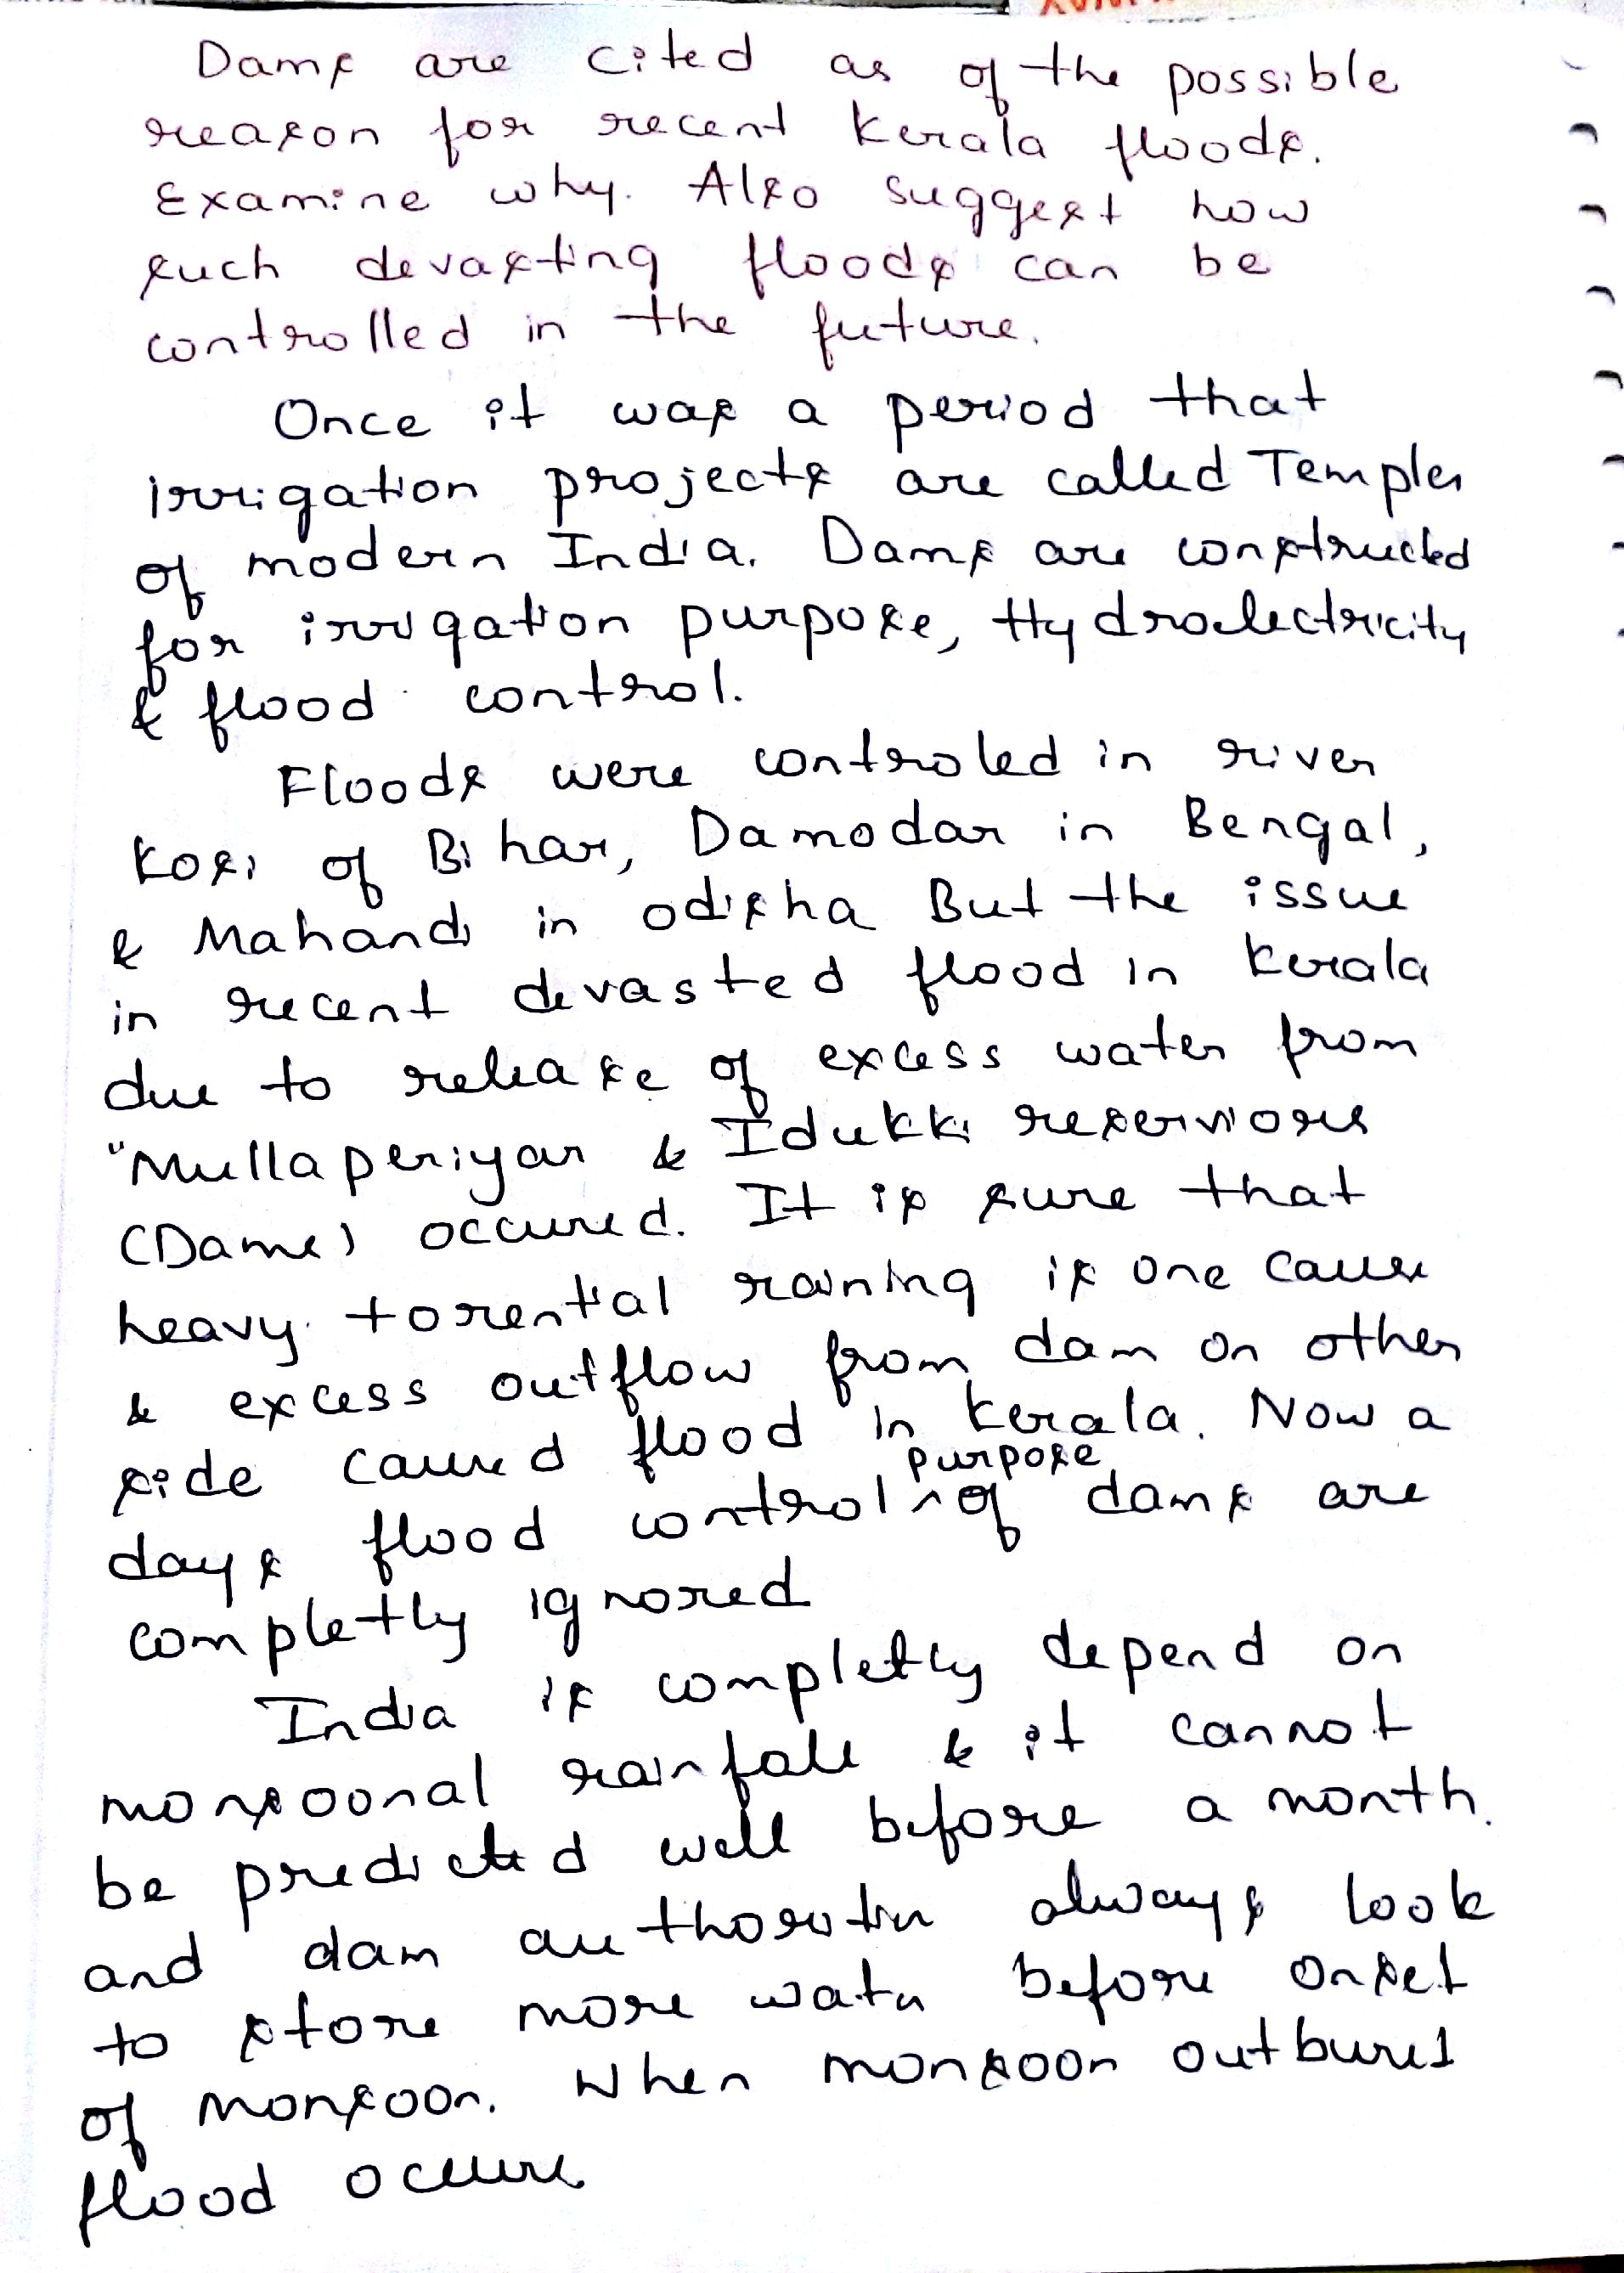 Dams are cited as of the possible
reason for recent Kerala floods.
Examine why. Also suggest how
such devasting floods can be
controlled in the future.
Once it was a period that
irrigation projects are called Temples
of modern India. Dams are constructed
for irrigation purpose, Hydroelectricity
& flood control.
Floods were controled in river
Kosi of Bihar, Damodar in Bengal,
& Mahandi in odisha But the issue
in recent devasted flood in Kerala
due to release of excess water from
"Mullaperiyar & Idukki reserviores
(Dames) occured. It is sure that
heavy torential raining is one cause
& excess outflow from dam on other
side caused flood in Kerala. Now a
days flood control ^purpose of dams are
completly ignored
India is completly depend on
monsoonal rainfall & it cannot
be predicted well before a month.
and dam authorities always look
to store more water before onset
of monsoon. When monsoon outburst
flood occure